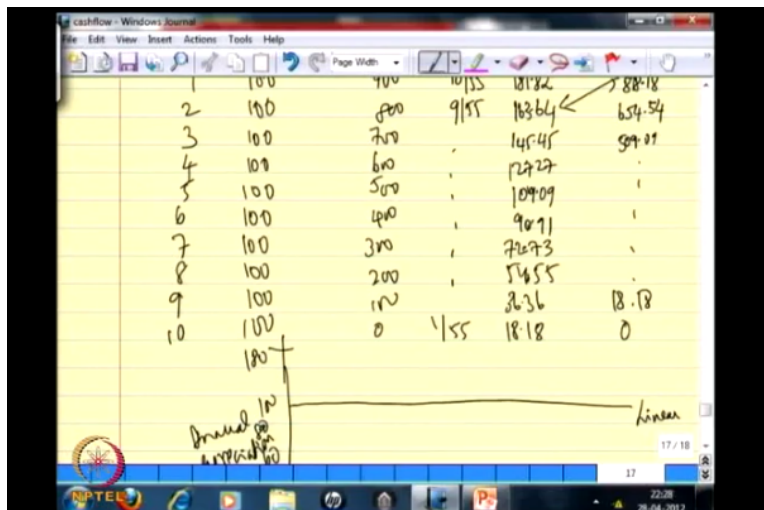 cashflow - Windows Journal
File Edit View Insert Actions Tools Help
Page Width
1 100 900 10/55 181.82 588.18
2 100 800 9/55 163.64 654.54
3 100 700 145.45 509.09
4 100 600 127.27
5 100 500 109.09
6 100 400 90.91
7 100 300 72.73
8 100 200 54.55
9 100 100 36.36 18.18
10 100 0 1/55 18.18 0
180
100
Linear
Annual 80
60
17 / 18
17
NPTEL
22:28
28-04-2012